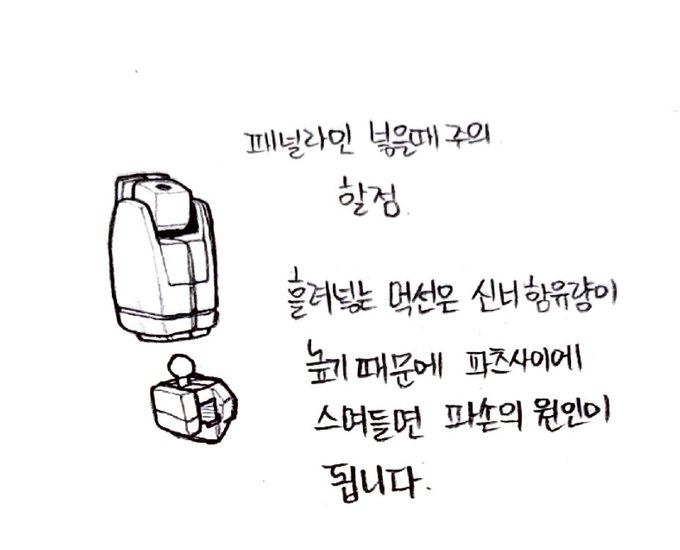 패널라인 넣을때 주의
할점.
흘려넣는 먹선은 신너 함유량이
높기 때문에 파츠사이에
스며들면 파손의 원인이
됩니다.